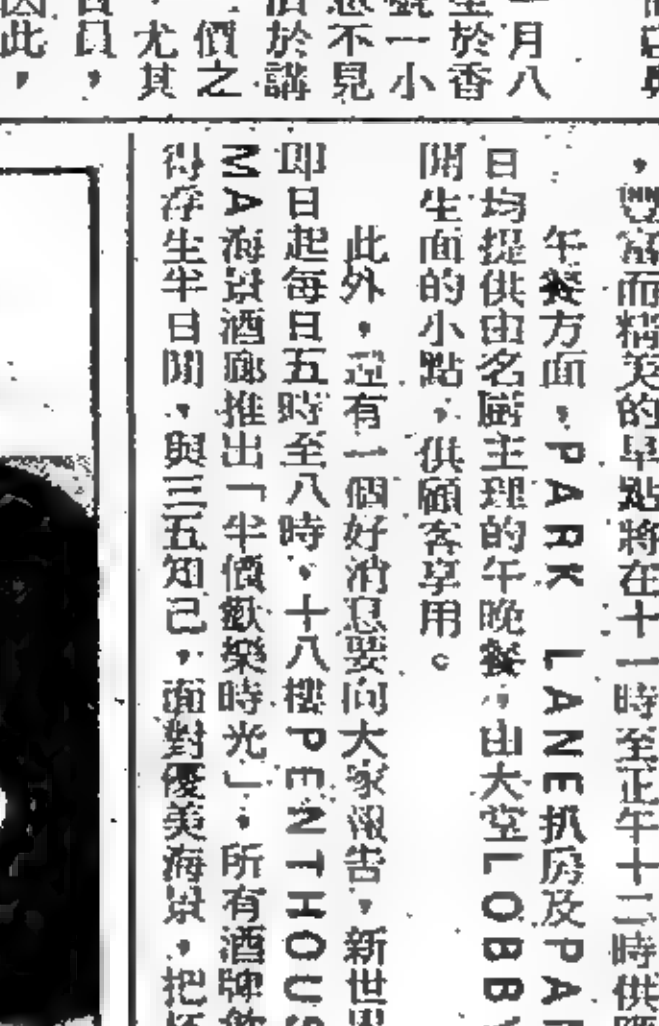 月八
於香
一小
不見
於講
價之
尤其
員，
因此，
，豐富而精美的早點將在十一時至正午十二時供
午餐方面，PARK LANE扒房及PA
日均提供由名廚主理的午晚餐，由大堂LOBBY
開生面的小點，供顧客享用。
此外，還有一個好消息要向大家報告，新世界
即日起每日五時至八時，十八樓PENTHOUS
MA海景酒廊推出「半價歡樂時光」，所有酒牌飲
得浮生半日閒，與三五知己，面對優美海景，把杯